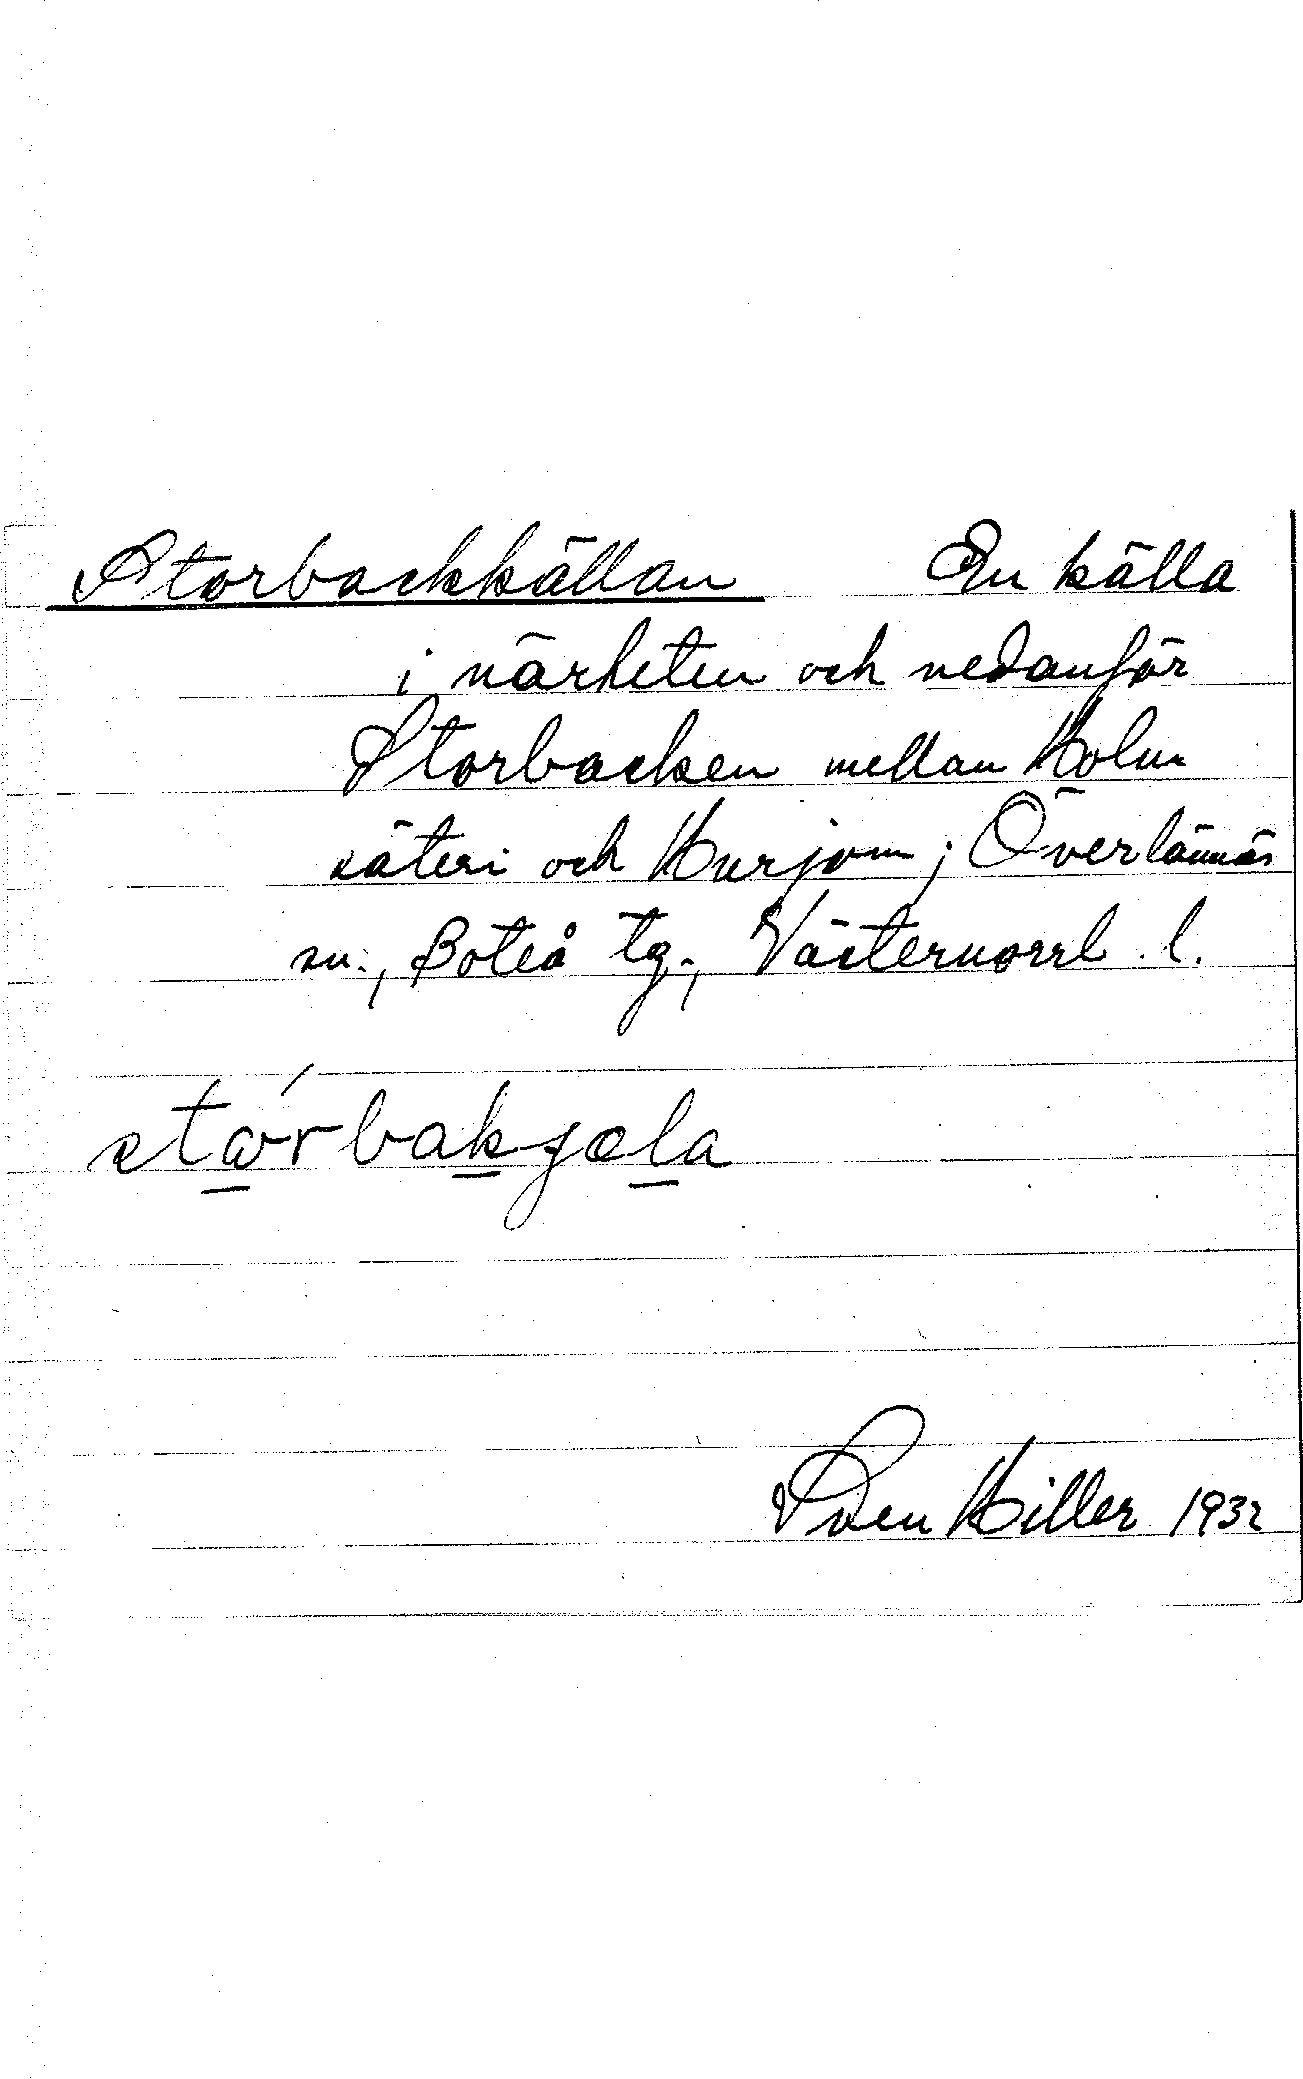 Storbackkällan En källa
i närheten och nedanför
Storbacken mellan Holm
säteri och Hurjom; Överlännäs
sn., Boteå tg., Västernorrl. l.
Sven Hiller 1932